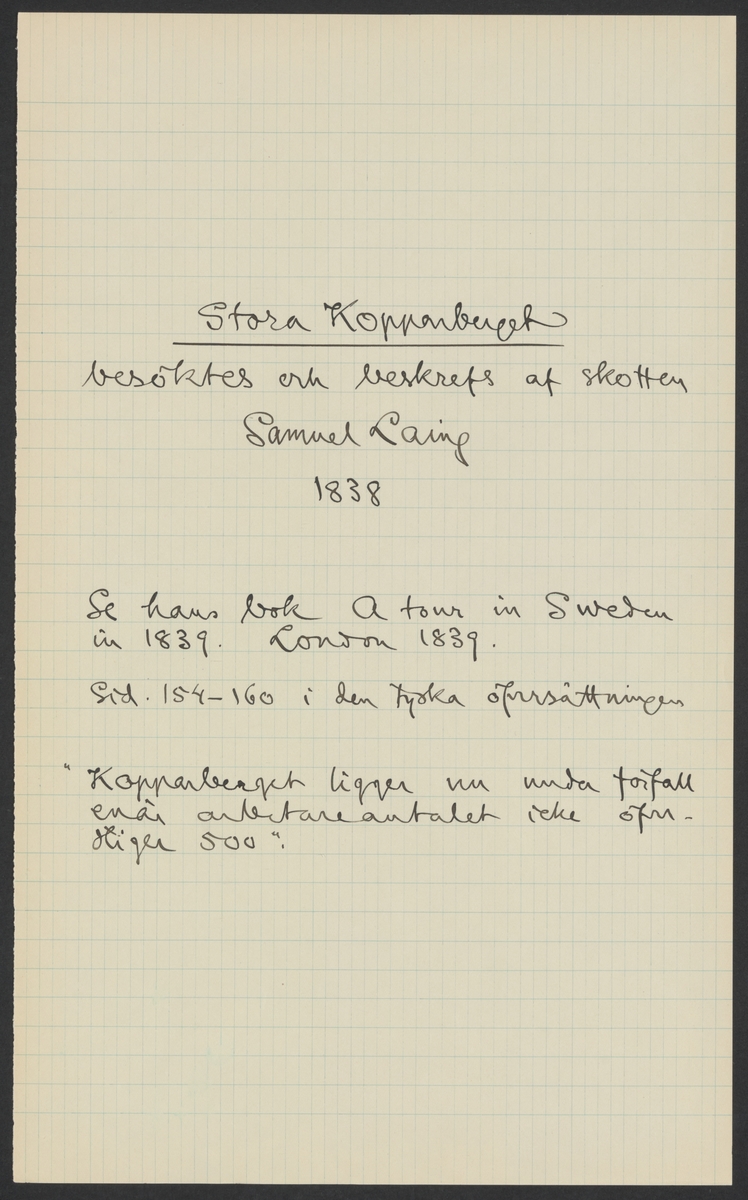 Stora Kopparberget
besöktes och beskrefs af skotten
Samuel Laing
1838
Se hans bok A tour in Sweden
in 1839. London 1839.
Sid. 154–160 i den tyska öfversättningen
"Kopparberget ligger nu under förfall
enär arbetareantalet icke öfver-
stiger 500".